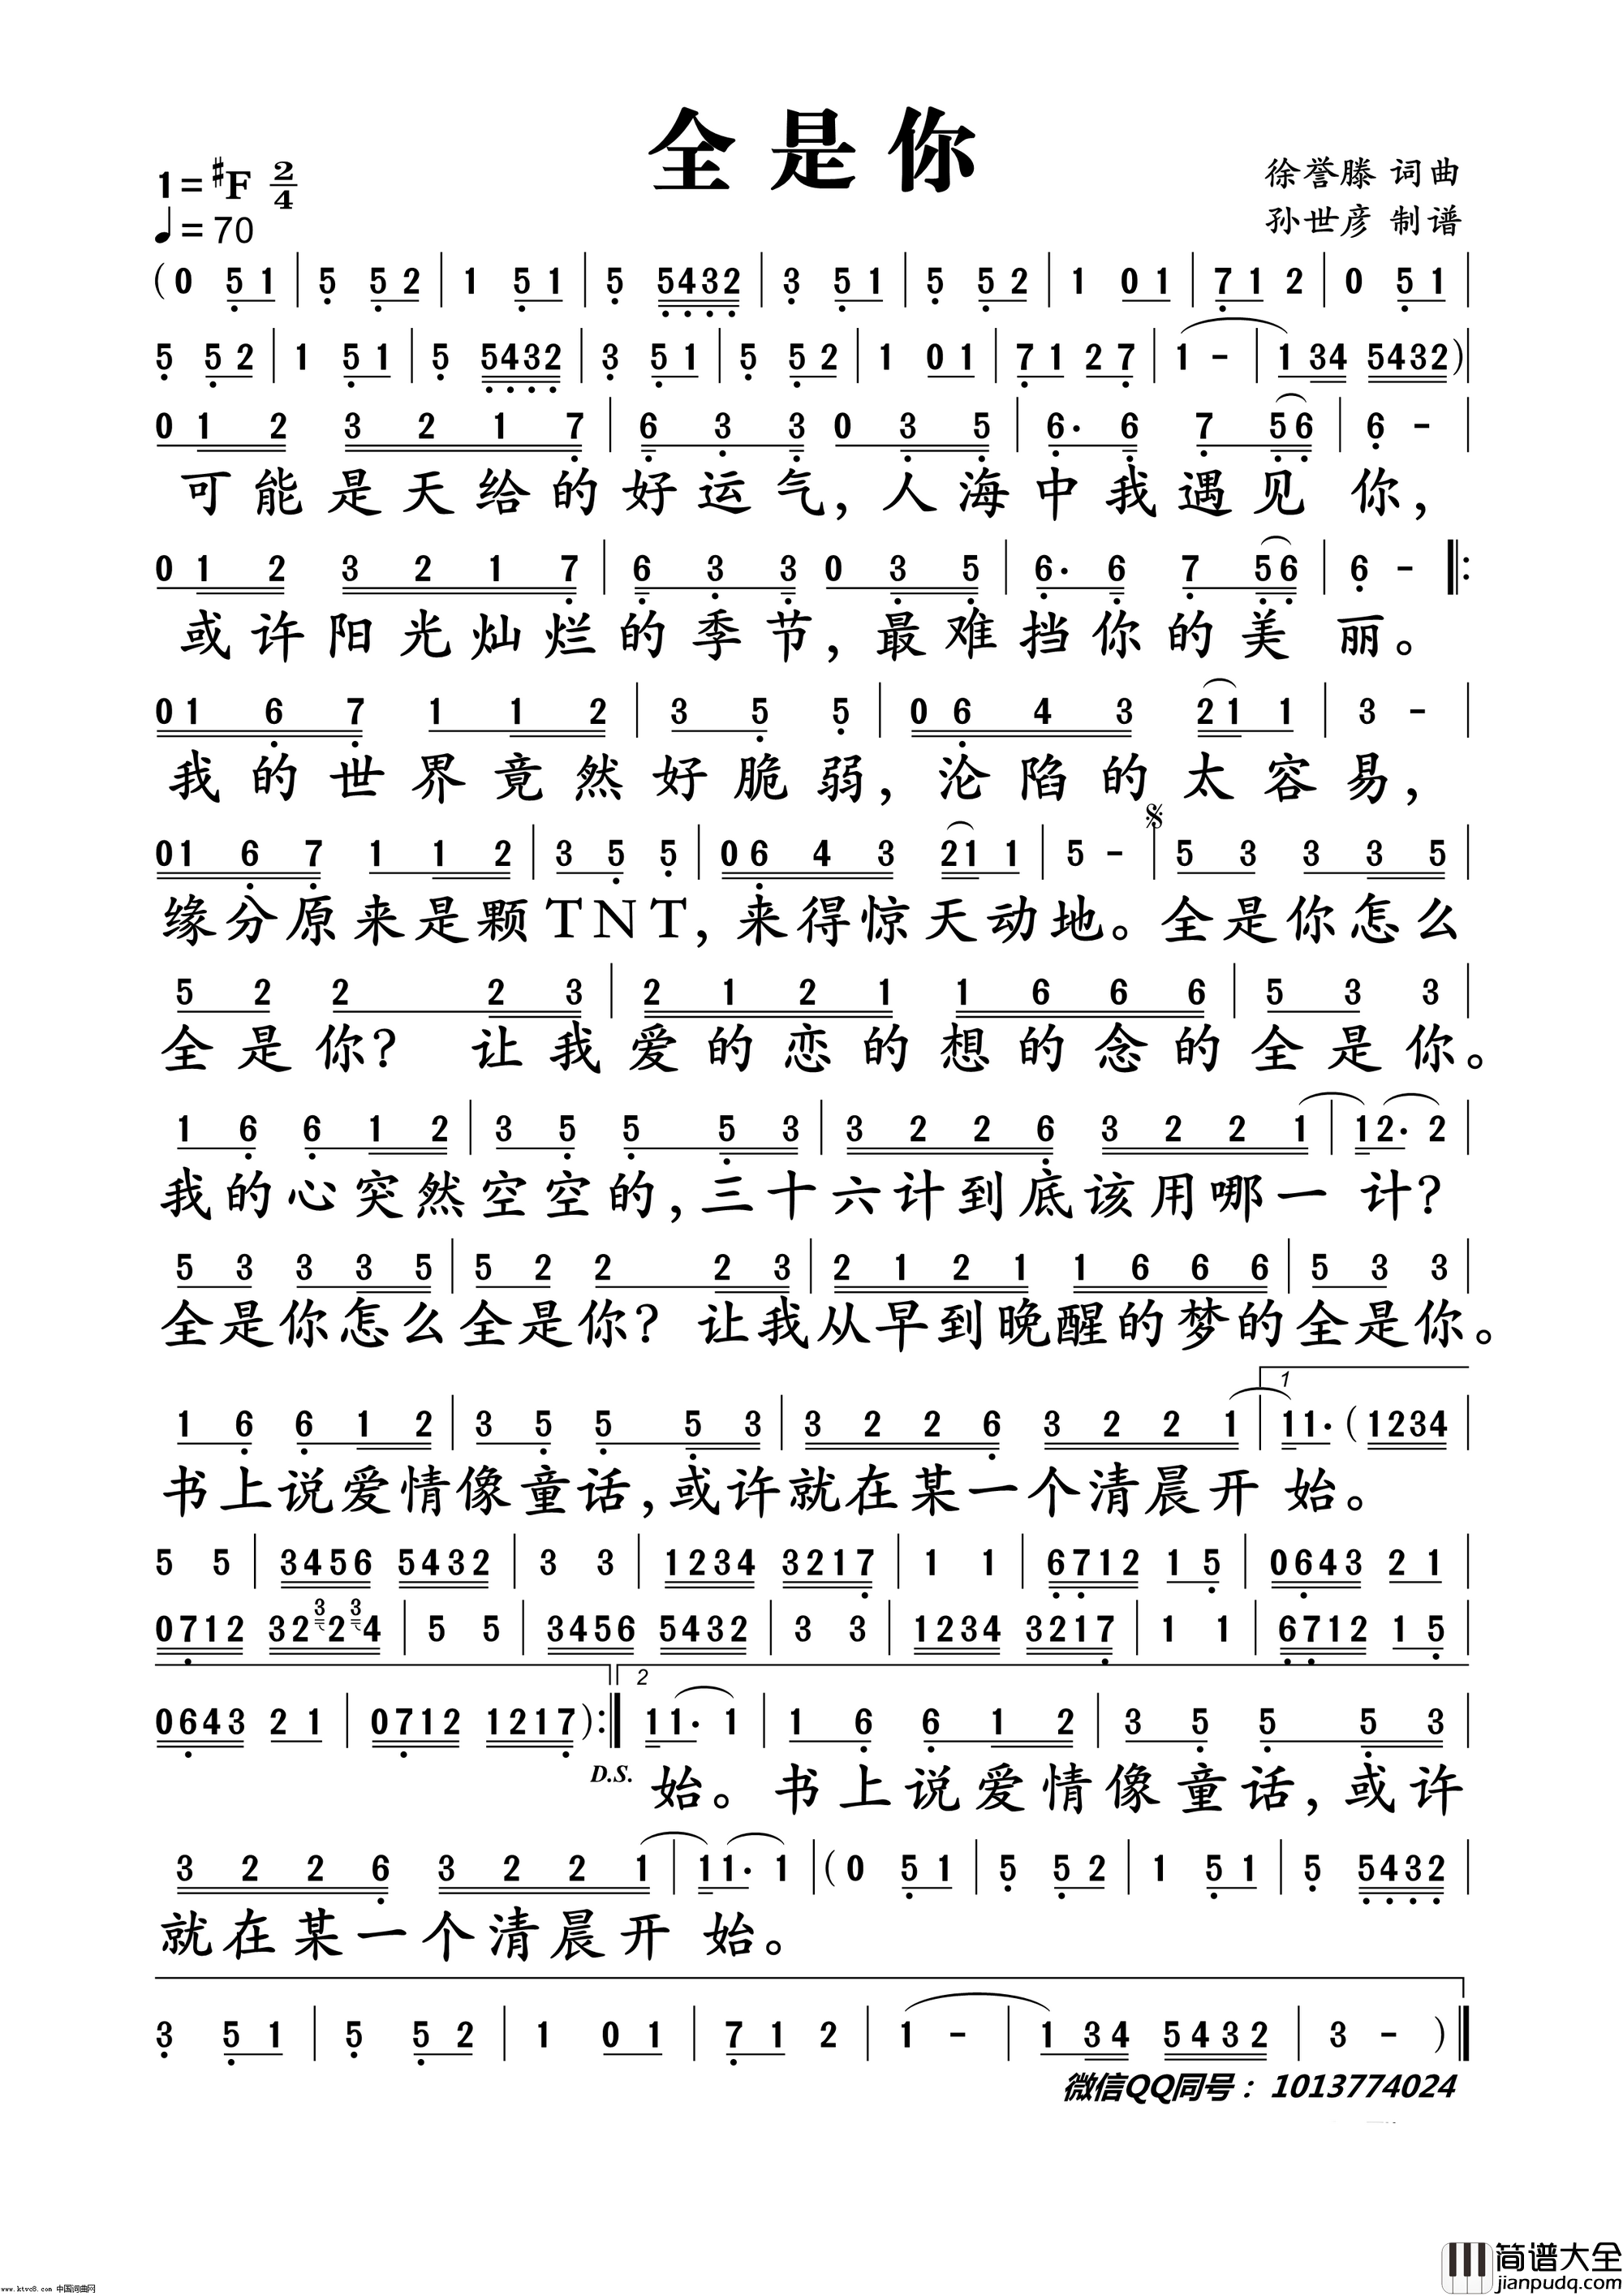 全是你
1=#F 2/4
徐誉滕 词曲
♩=70
孙世彦 制谱
(0 5 1 | 5 5 2 | 1 5 1 | 5 5432 | 3 5 1 | 5 5 2 | 1 0 1 | 7 1 2 | 0 5 1 |
5 5 2 | 1 5 1 | 5 5432 | 3 5 1 | 5 5 2 | 1 0 1 | 7 1 2 7 | 1 - | 1 34 5432)|
0 1 2 3 2 1 7 | 6 3 3 0 3 5 | 6· 6 7 56 | 6 - |
可能是天给的好运气,人海中我遇见你,
0 1 2 3 2 1 7 | 6 3 3 0 3 5 | 6· 6 7 56 | 6 - ‖:
或许阳光灿烂的季节,最难挡你的美丽。
0 1 6 7 1 1 2 | 3 5 5 | 0 6 4 3 21 1 | 3 - |
我的世界竟然好脆弱,沦陷的太容易,
01 6 7 1 1 2 | 3 5 5 | 06 4 3 21 1 | 5 - | 5 3 3 3 5 |
缘分原来是颗TNT,来得惊天动地。全是你怎么
5 2 2 2 3 | 2 1 2 1 1 6 6 6 | 5 3 3 |
全是你? 让我爱的恋的想的念的全是你。
1 6 6 1 2 | 3 5 5 5 3 | 3 2 2 6 3 2 2 1 | 12· 2 |
我的心突然空空的,三十六计到底该用哪一计?
5 3 3 3 5 | 5 2 2 2 3 | 2 1 2 1 1 6 6 6 | 5 3 3 |
全是你怎么全是你? 让我从早到晚醒的梦的全是你。
1
1 6 6 1 2 | 3 5 5 5 3 | 3 2 2 6 3 2 2 1 | 11· (1234 |
书上说爱情像童话,或许就在某一个清晨开始。
5 5 | 3456 5432 | 3 3 | 1234 3217 | 1 1 | 6712 1 5 | 0643 2 1 |
0712 32 3 2 3 4 | 5 5 | 3456 5432 | 3 3 | 1234 3217 | 1 1 | 6712 1 5 |
2
0643 2 1 | 0712 1217):‖ 11· 1 | 1 6 6 1 2 | 3 5 5 5 3 |
D.S. 始。书上说爱情像童话,或许
3 2 2 6 3 2 2 1 | 11· 1 |(0 5 1 | 5 5 2 | 1 5 1 | 5 5432 |
就在某一个清晨开始。
3 5 1 | 5 5 2 | 1 0 1 | 7 1 2 | 1 - | 1 34 5432 | 3 - )‖
微信QQ同号：1013774024
简谱大全
jianpudq.com
www.ktvc8.com 中国词曲网